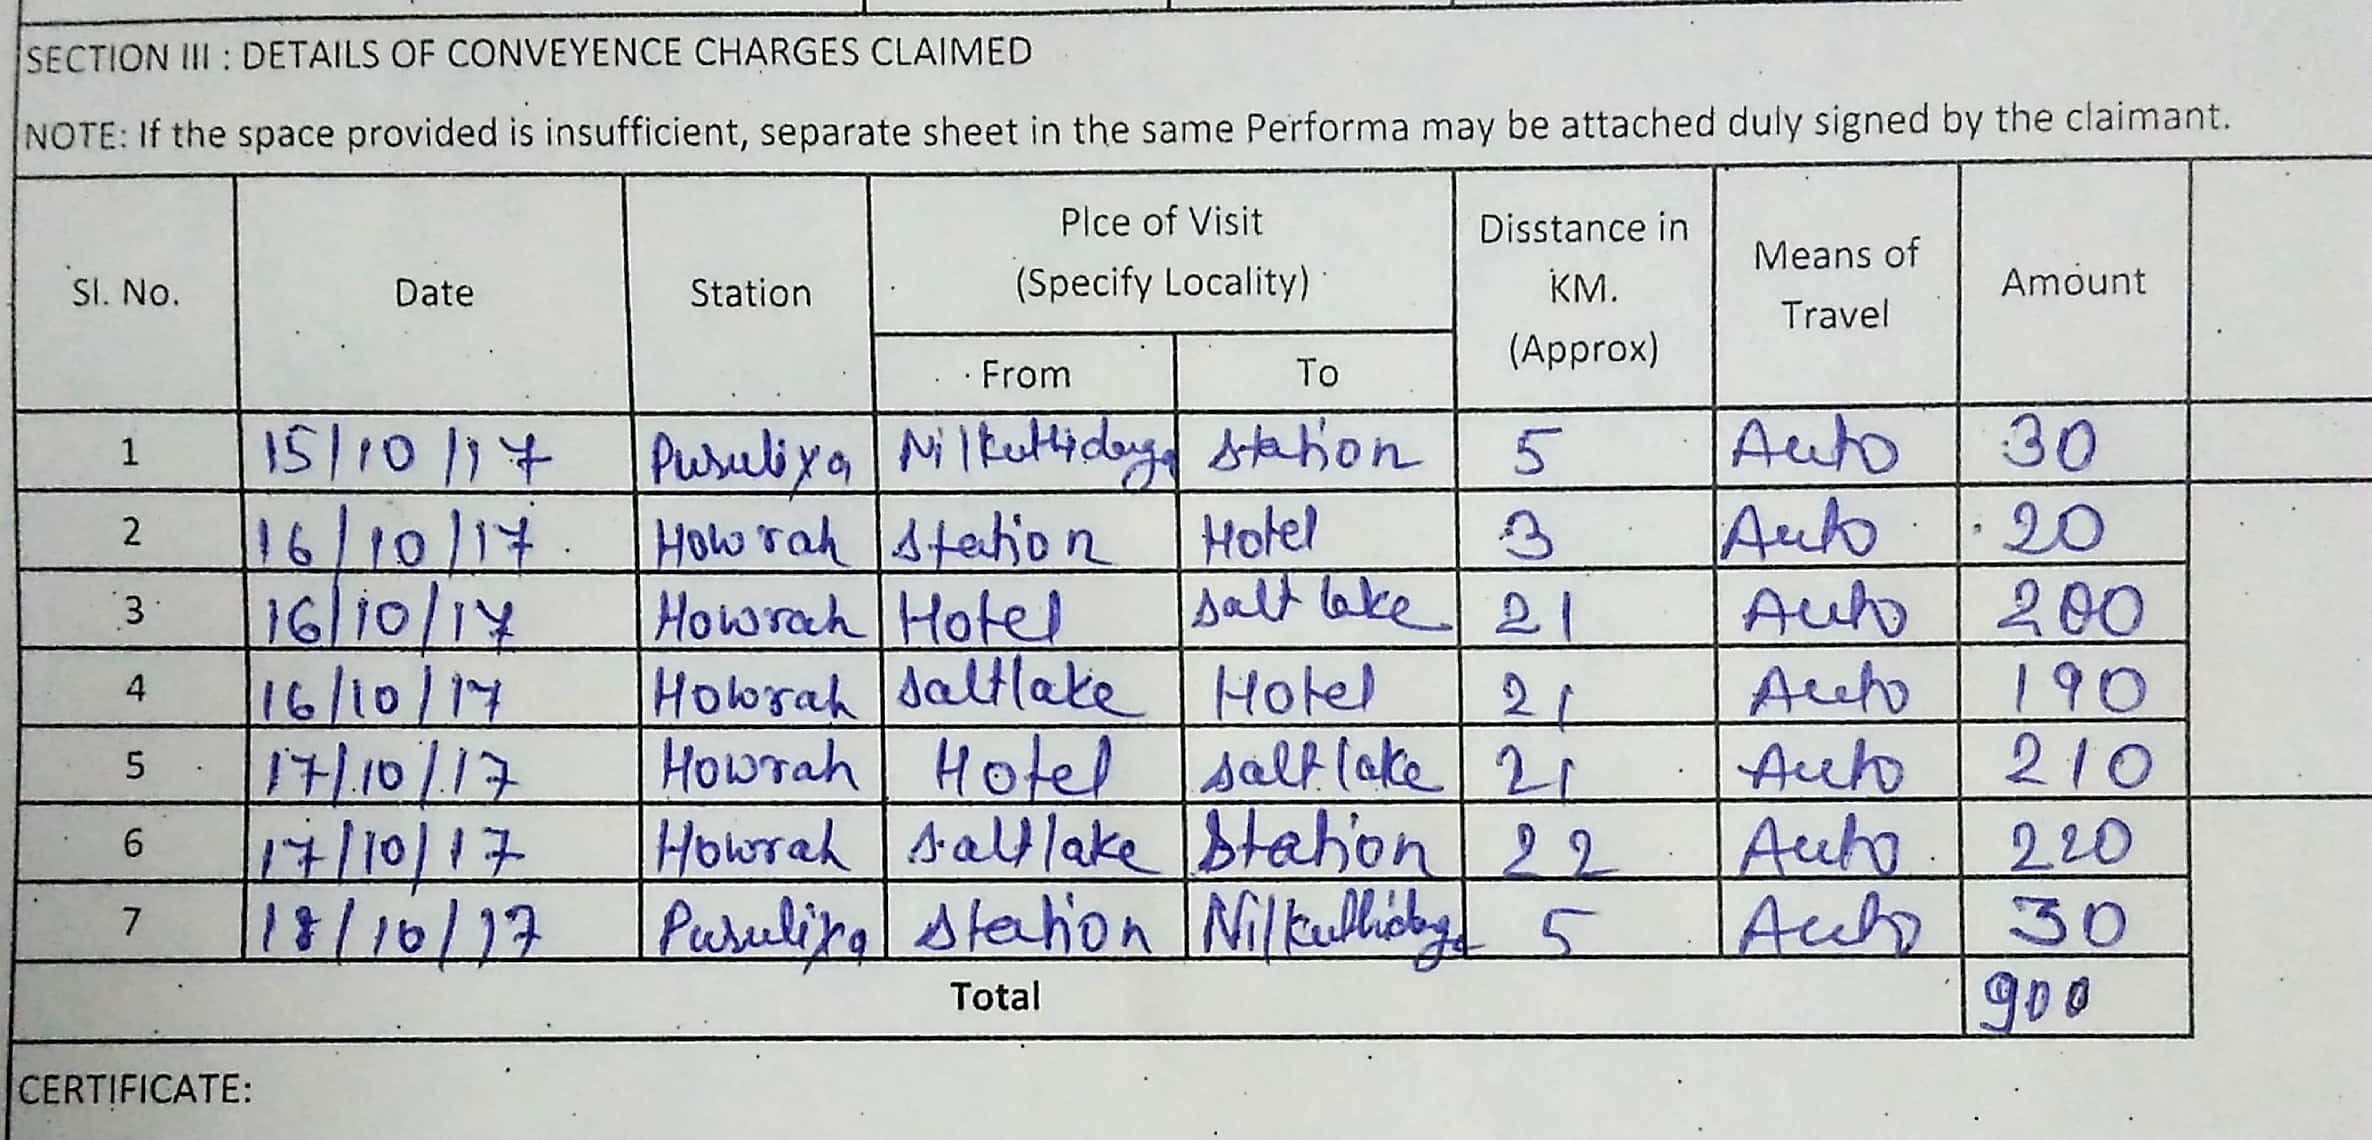 SECTION III : DETAILS OF CONVEYENCE CHARGES CLAIMED
NOTE: If the space provided is insufficient, separate sheet in the same Performa may be attached duly signed by the claimant.
Sl. No. Date Station Plce of Visit (Specify Locality) Disstance in KM. (Approx) Means of Travel Amount
From To
1 15/10/17 Puruliya Nilkuthidanga Station 5 Auto 30
2 16/10/17 Howrah Station Hotel 3 Auto 20
3 16/10/17 Howrah Hotel Salt lake 21 Auto 200
4 16/10/17 Howrah Saltlake Hotel 21 Auto 190
5 17/10/17 Howrah Hotel Salt lake 21 Auto 210
6 17/10/17 Howrah Salt lake Station 22 Auto 220
7 18/10/17 Puruliya Station Nilkuthidanga 5 Auto 30
Total 900
CERTIFICATE: